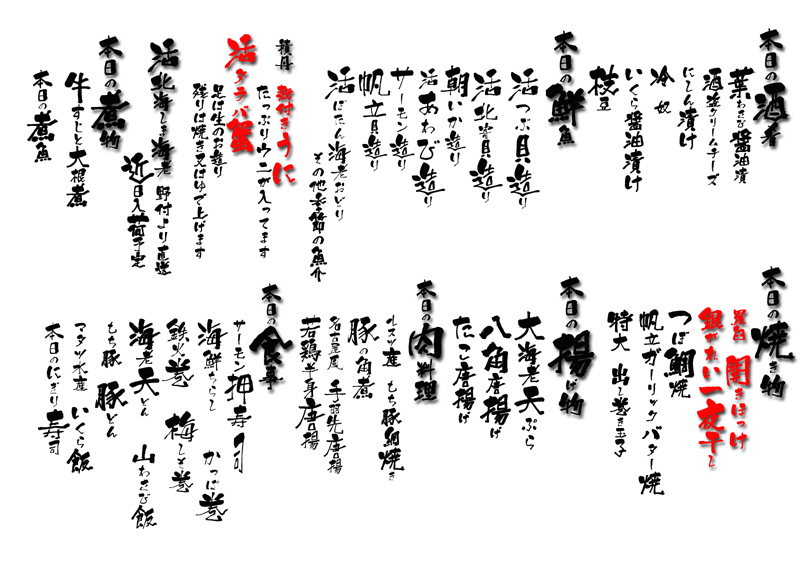 本日の酒肴
葉わさび醤油漬
酒盗クリームチーズ
にしん漬け
冷奴
いくら醤油漬け
枝豆
本日の鮮魚
活つぶ貝造り
活北寄貝造り
活あわび造り
朝いか造り
サーモン造り
帆立貝造り
活ぼたん海老おどり
その他季節の魚介
積丹 殻付きうに
たっぷりウニが入ってます
活タラバ蟹
足は生のお造り
残りは焼き又はゆで上げます
活北海しま海老 野付より直送
近日入荷予定
本日の煮物
牛すじと大根煮
本日の煮魚
本日の焼き物
開きほっけ
銀がれい一夜干し
つぼ鯛焼
帆立ガーリックバター焼
特大 出し巻き玉子
本日の揚げ物
大海老天ぷら
八角唐揚げ
たこ唐揚げ
本日の肉料理
もち豚網焼き
豚の角煮
名古屋風 手羽先唐揚
若鶏半身唐揚
本日の食事
サーモン押寿司
海鮮ちらし かっぱ巻
鉄火巻 梅しそ巻
海老天どん 山わさび飯
もち豚 豚どん
マルツ水産 いくら飯
本日のにぎり寿司